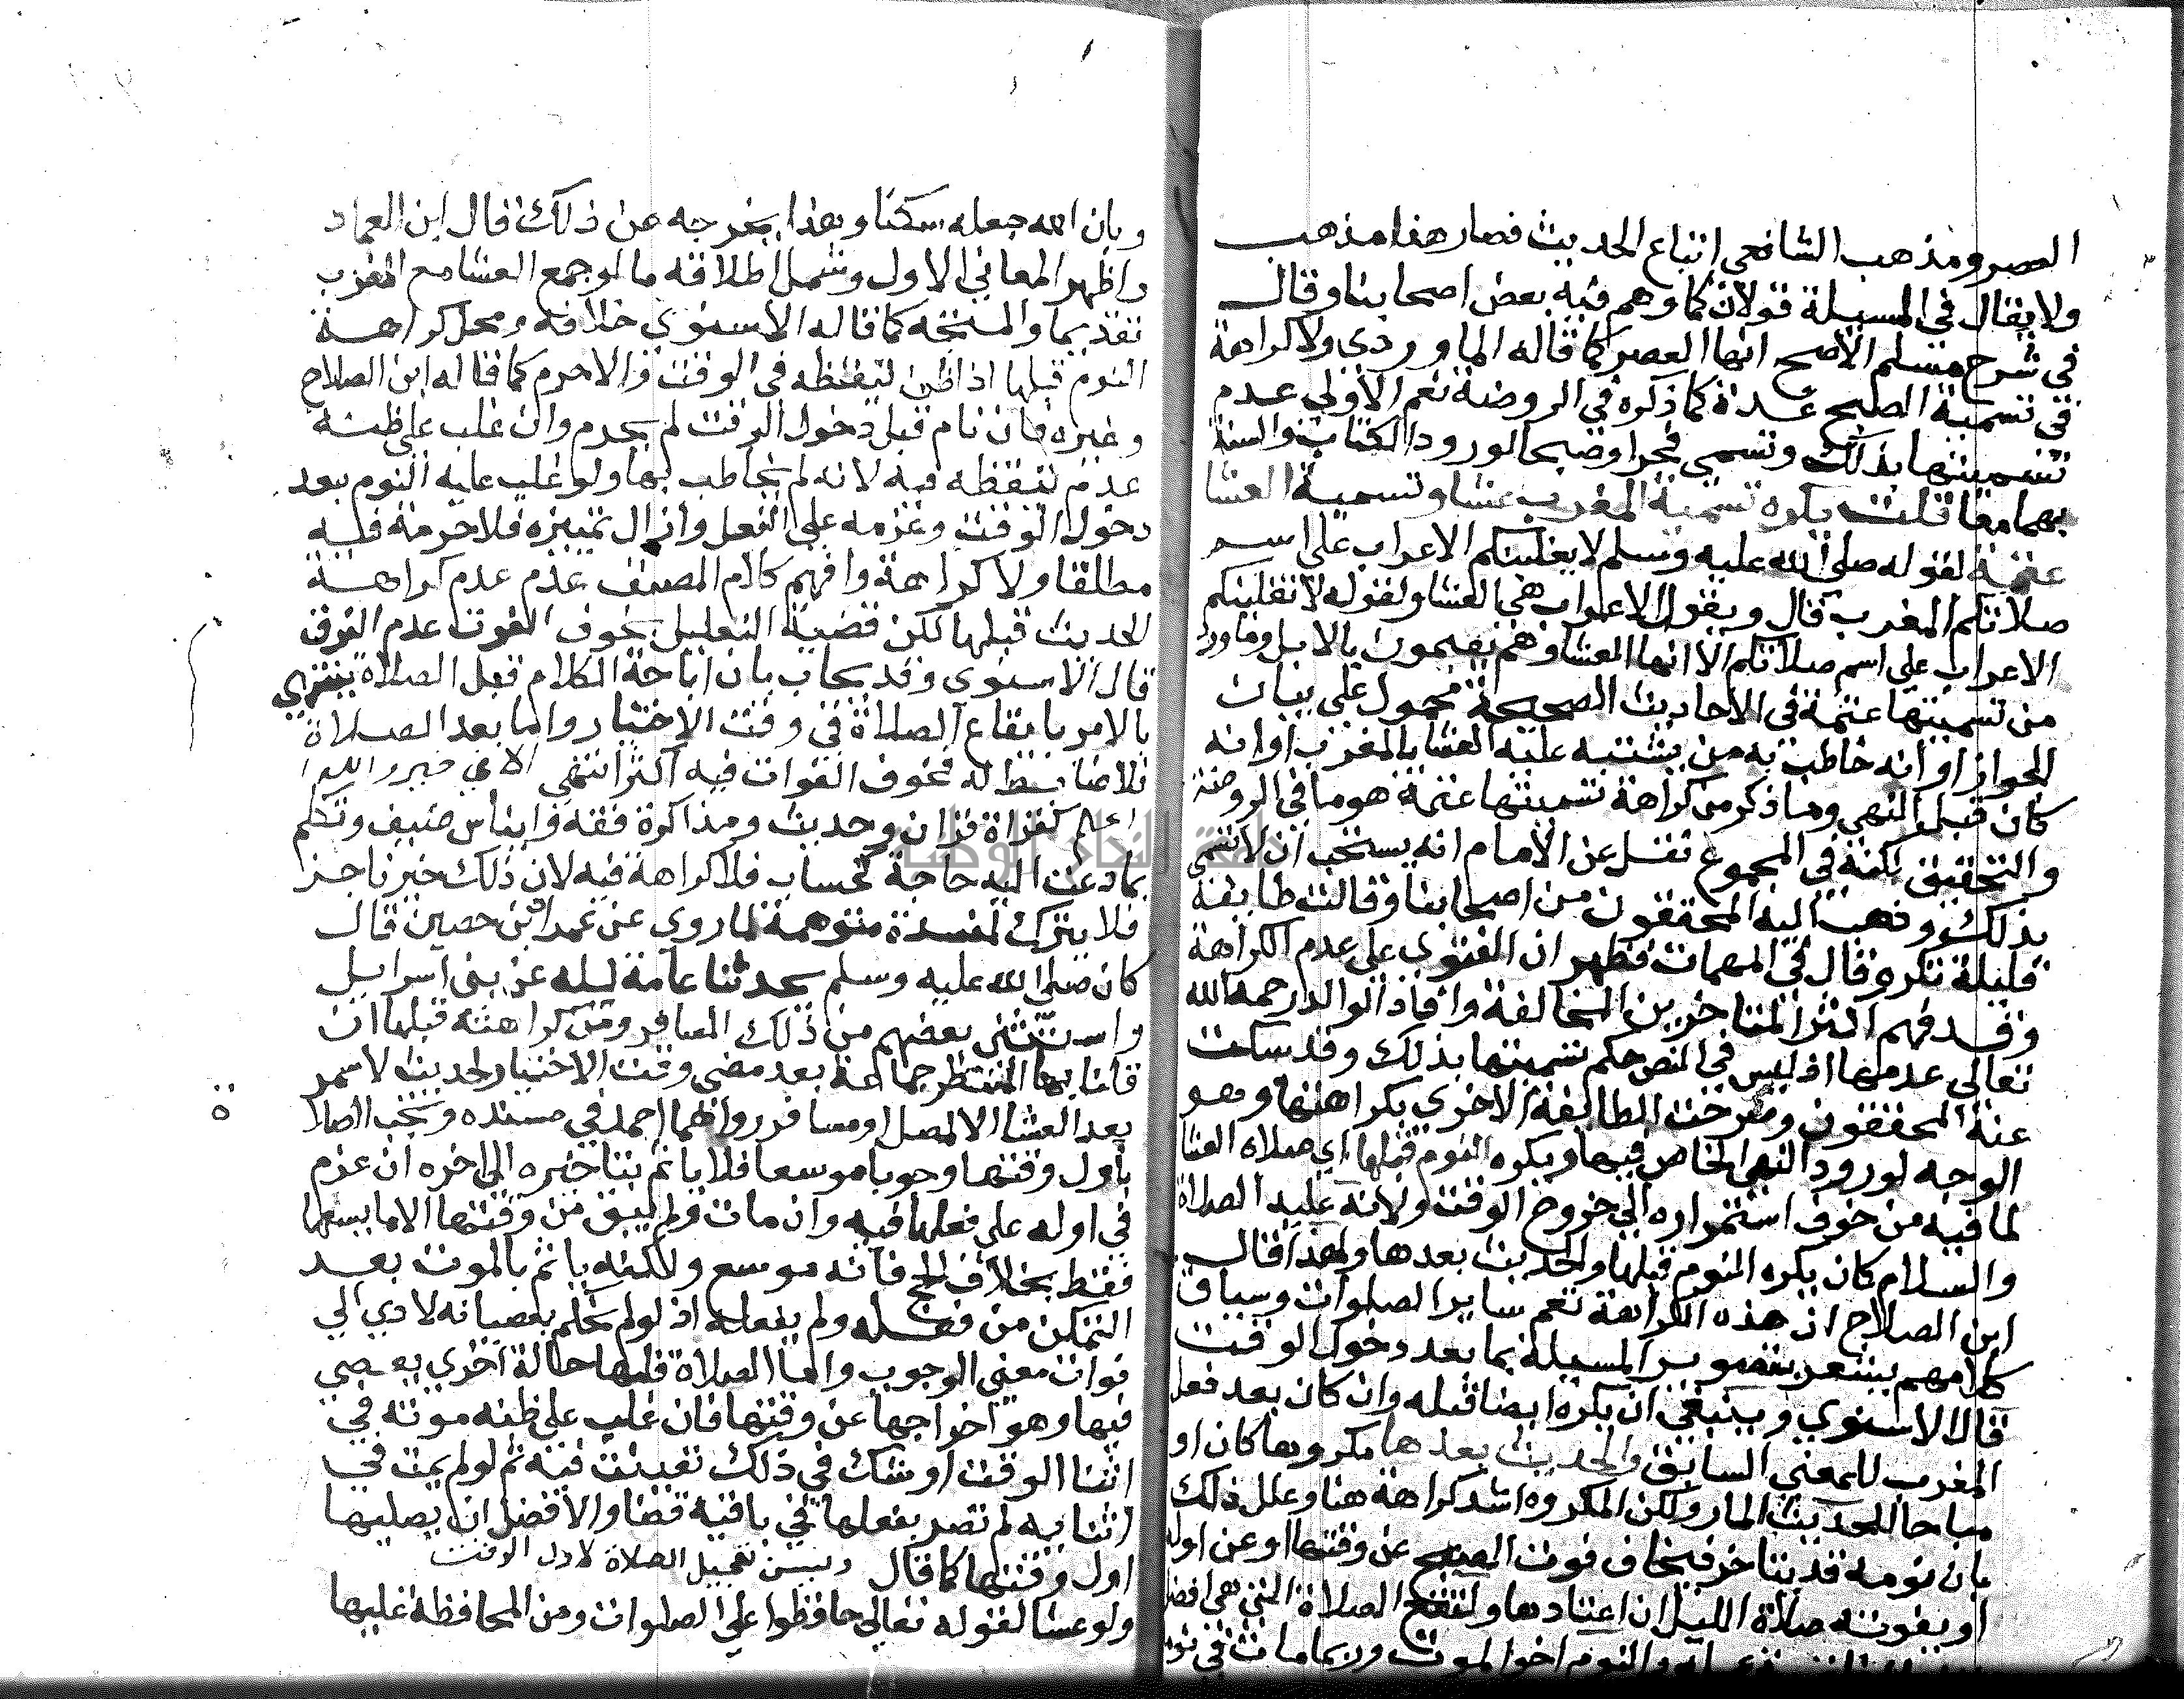 العصر ومذهب الشافعي اتباع الحديث فصار هذا مذهب
ولا يقال في المسيلة قولان كما وهم فيه بعض اصحابنا وقال
في شرح مسلم الاصح انها العصر كما قاله الماوردي ولا كراهة
في تسمية الصبح غداة كما ذكره في الروضة نعم الاولي عدم
تسميتها بذلك وتسمي فجرا وصبحا لورود الكتاب والسنة
بهما معا قلت يكره تسمية المغرب عشا وتسمية العشا
عتمة لقوله صلي الله عليه وسلم لا يغلبنكم الاعراب علي اسم
صلاتكم المغرب قال ويقول الاعراب هي العشا ولقوله لا تغلبنكم
الاعراب علي اسم صلاتكم الا انها العشا وهم يعتمون بالابل وما ورد
من تسميتها عتمة في الاحاديث الصحيحة محمول علي بيان
الجواز او انه خاطب به من يشتبه عليه العشا بالمغرب او انه
كان قبل النهي وما ذكر من كراهة تسميتها عتمة هو ما في الروضة
والتحقيق لكنه في المجموع نقل عن الامام انه يستحب ان لا تسمي
بذلك وذهب اليه المحققون من اصحابنا وقالت طايفة
قليلة تكره وقال في المهمات فظهر ان الفتوي علي عدم الكراهة
وقد فهم اكثر المتاخرين المخالفة وافاد الوالد رحمه الله
تعالي عدمها اذ ليس في النص حكم تسميتها بذلك وقد سكت
عنه المحققون وصرحت الطائفة الاخري بكراهتها وهو
الوجه لورود النهي الخاص فيها ويكره النوم قبلها اي صلاة العشا
لما فيه من خوف استمراره الي خروج الوقت ولانه عليه الصلاة
والسلام كان يكره النوم قبلها والحديث بعدها ولهذا قال
ابن الصلاح ان هذه الكراهة تعم ساير الصلوات وسياق
كلامهم يشعر بتصوير المسيلة بما بعد دخول الوقت
قال الاسنوي وينبغي ان يكره ايضا قبله وان كان بعد فعل
المغرب للمعني السابق والحديث بعدها مكروها كان او
مباحا للحديث المار ولكن المكروه اشد كراهة هنا وعلل ذلك
بان نومه قد يتاخر فيخاف فوت الصبح عن وقتها او عن اوله
او يفوته صلاة الليل ان اعتادها ولتقع الصلاة التي هي افضل
والنوم اخو الموت وربما مات في نومه
وبان الله جعله سكنا وهذا يخرجه عن ذلك قال ابن العماد
واظهر المعاني الاول وشمل اطلاقه ما لو جمع العشا مع المغرب
تقديما والمتجه كما قاله الاسنوي خلافه ومحل كراهة
النوم قبلها اذا ظن تيقظه في الوقت والا حرم كما قاله ابن الصلاح
وغيره فان نام قبل دخول الوقت لم يحرم وان غلب علي ظنه
عدم تيقظه فيه لانه لم يخاطب بها ولو غلب عليه النوم بعد
دخول الوقت وعزمه علي الفعل وازال تمييزه فلا حرمة فيه
مطلقا ولا كراهة وافهم كلام المصنف عدم عدم كراهة
الحديث قبلها لكن قضية التعليل بخوف الفوت عدم الفرق
قال الاسنوي وقد يجاب بان اباحة الكلام قبل الصلاة ينتهي
بالامر بايقاع الصلاة في وقت الاختيار واما بعد الصلاة
فلا ضابط له فخوف الفوات فيه اكثر انتهي الا في خير والله
اعلم كقراة قران وحديث ومذاكرة فقه وايناس ضيف وتكلم
بما دعت اليه حاجة كحساب فلا كراهة فيه لان ذلك خير ناجز
فلا يترك لمفسدة متوهمة لما روي عن عمران بن حصين قال
كان صلي الله عليه وسلم يحدثنا عامة ليله عن بني اسرايل
واستثني بعضهم من ذلك المسافر ومن كراهته قبلها ان
قاتنا بها المنتظر جماعة بعد مضي وقت الاختيار لحديث لا سمر
بعد العشا الا لمصل او مسافر رواهما احمد في مسنده وتجب الصلاة
باول وقتها وجوبا موسعا فلا ياثم بتاخيره الي اخره ان عزم
في اوله علي فعلها فيه وان مات ولم يبق من وقتها الا ما يسعها
فقط بخلاف الحج فانه موسع ولكنه ياثم بالموت بعد
التمكن من فعله ولم يفعله اذ لو لم يحكم بعصيانه لادي الي
فوات معني الوجوب واما الصلاة فلها حالة اخري يعصي
فيها وهو اخراجها عن وقتها فان غلب علي ظنه موته في
اثنا الوقت او شك في ذلك تعينت فيه ثم لو لم يمت في
اثنايه لم تصر بفعلها في باقيه قضا والافضل ان يصليها
اول وقتها كما قال ويسن تعجيل الصلاة لاول الوقت
ولو عشا لقوله تعالي حافظوا علي الصلوات ومن المحافظة عليها